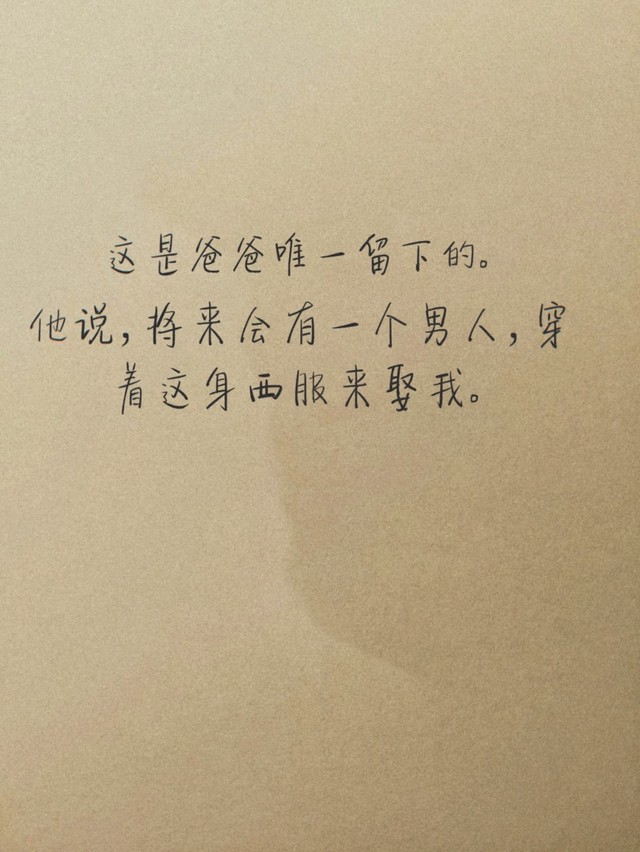 这是爸爸唯一留下的。
他说,将来会有一个男人,穿
着这身西服来娶我。